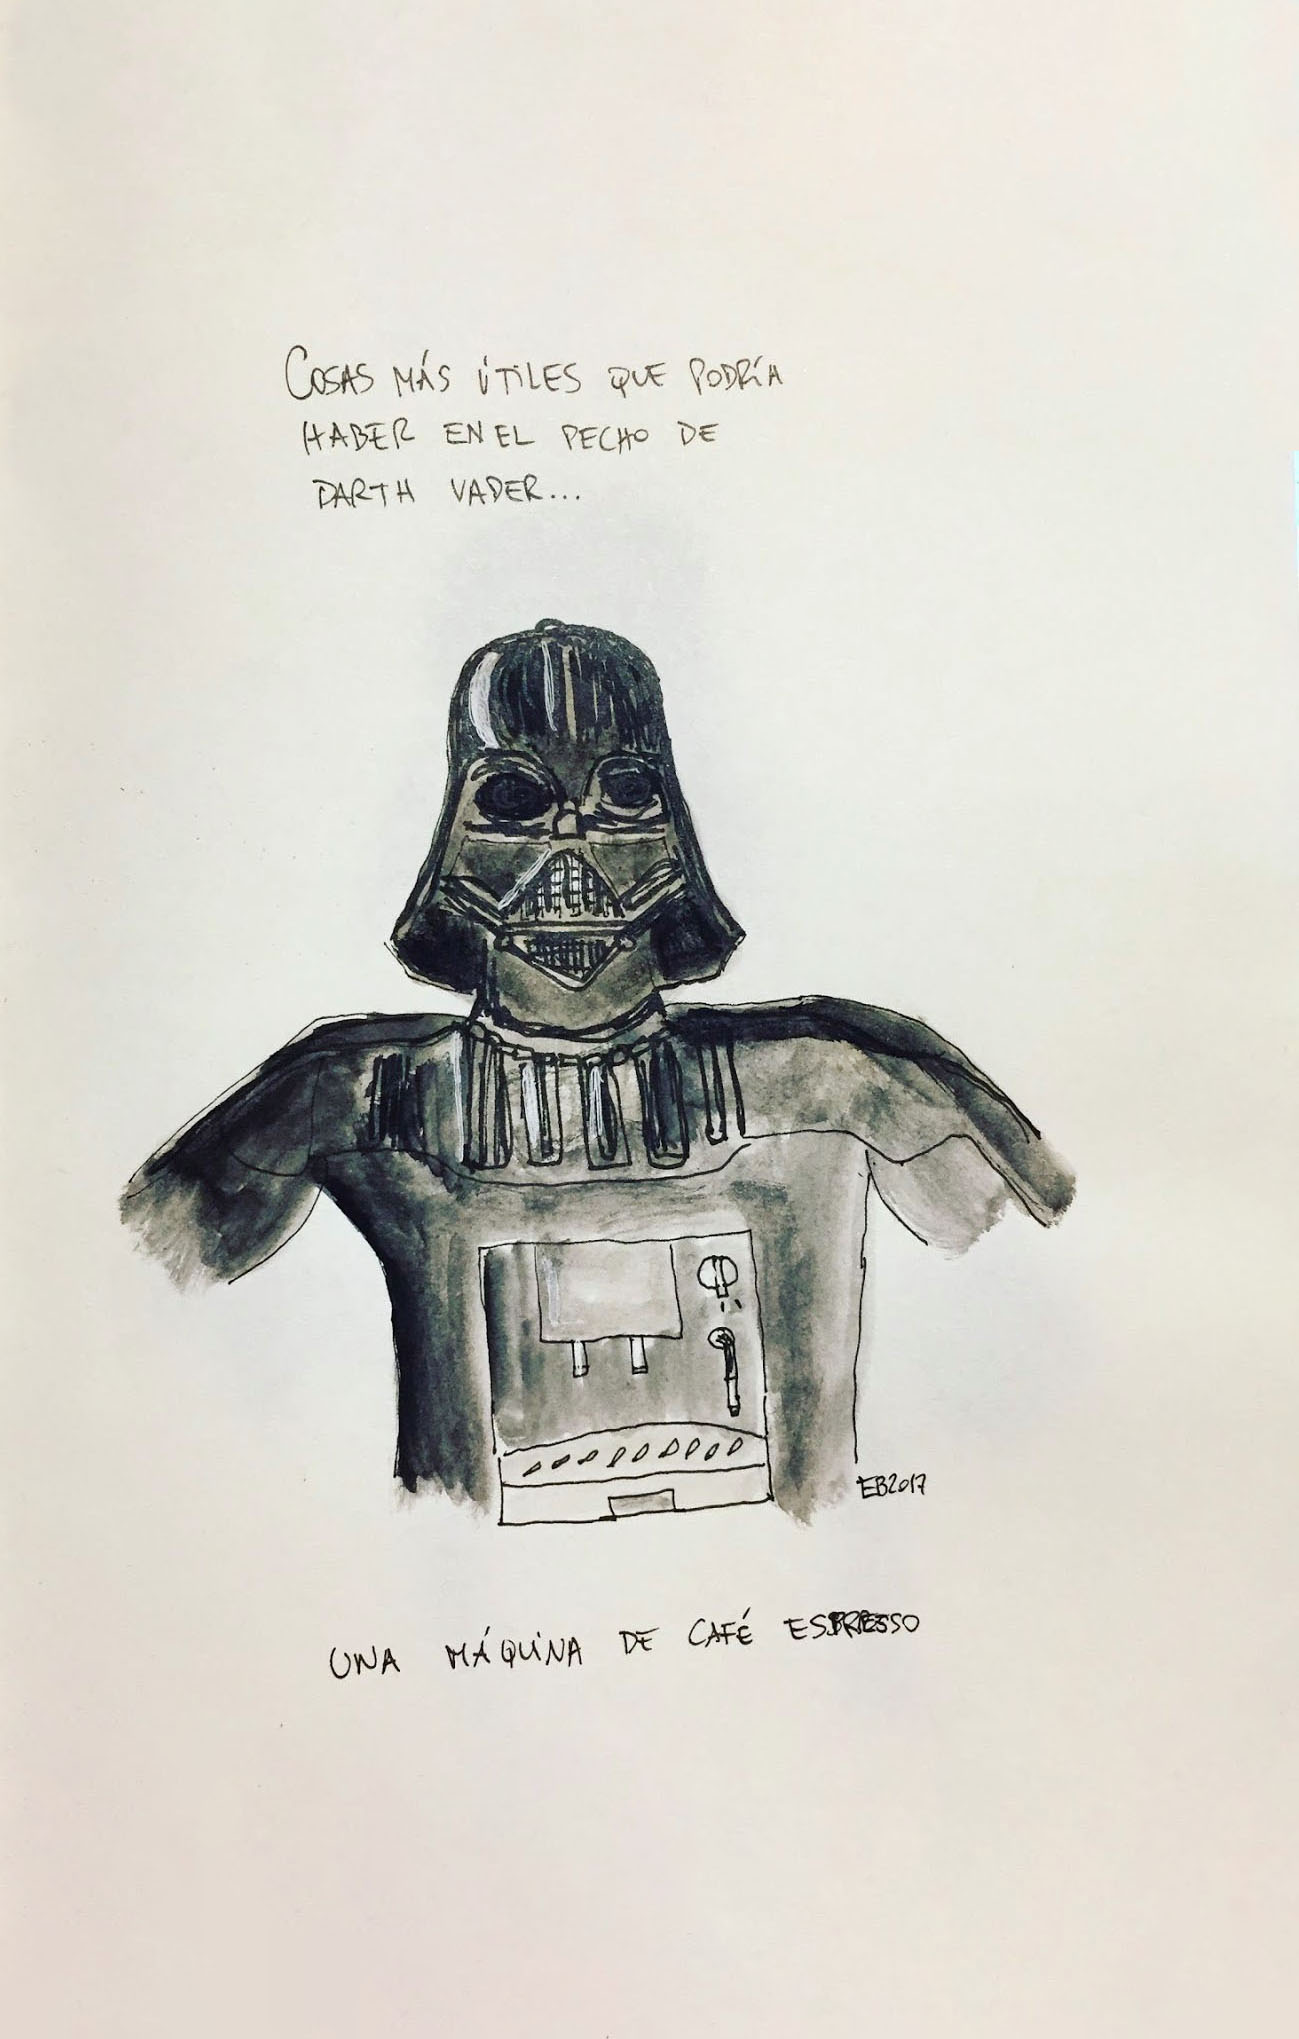 COSAS MÁS ÚTILES QUE PODRÍA
HABER EN EL PECHO DE
DARTH VADER...
EB2017
UNA MÁQUINA DE CAFÉ ESPRESSO